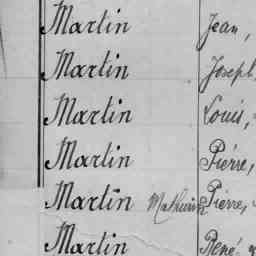 Martin Jean,
Martin Joseph,
Martin Louis,
Martin Pierre,
Martin Mathurin Pierre,
Martin René,